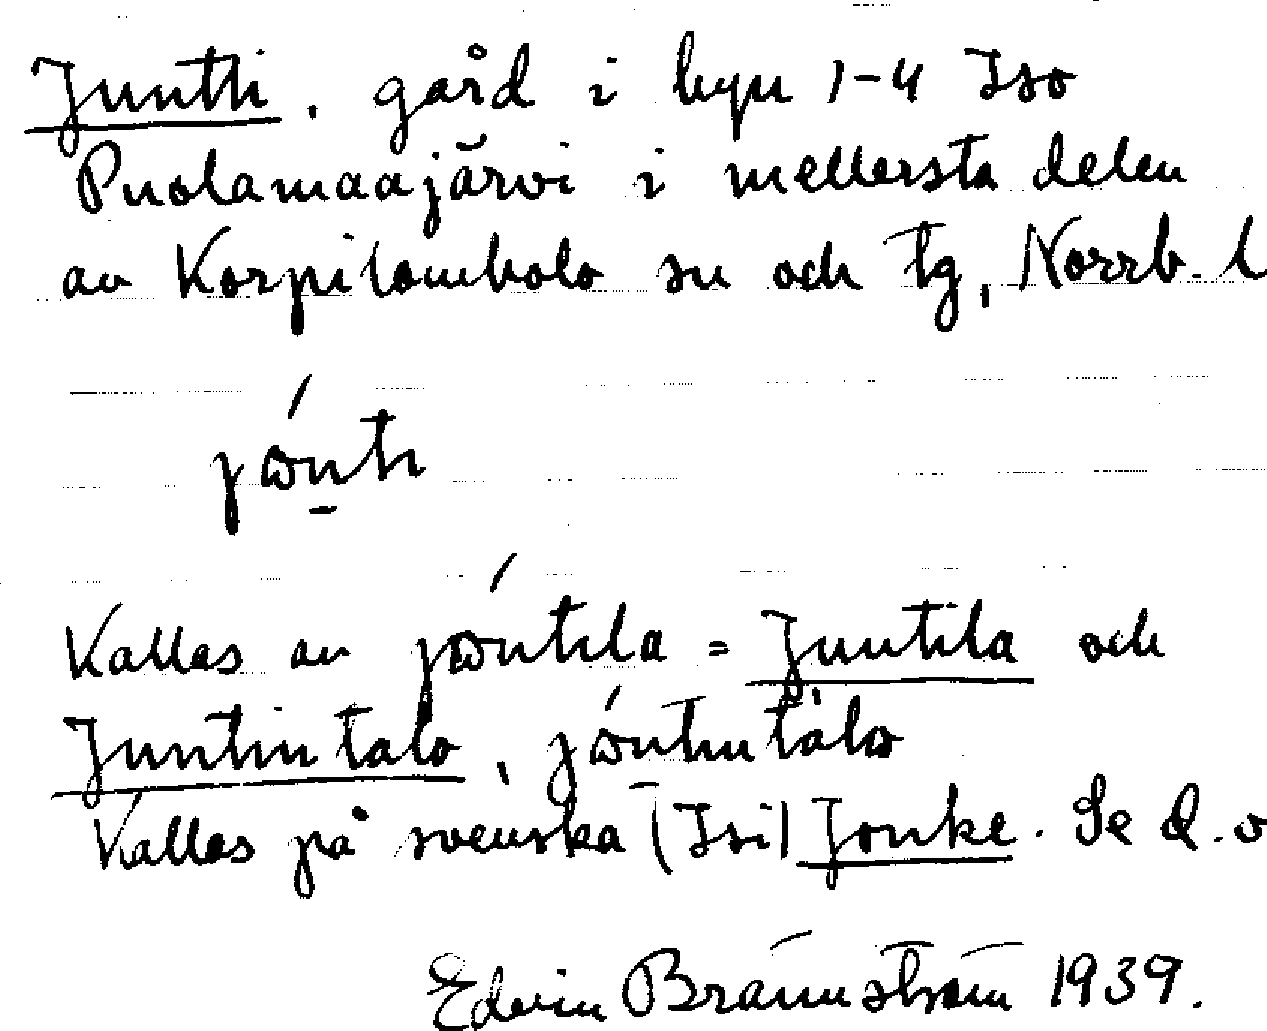 Juntti. gård i byn 1-4 Iso
Puolamaajärvi i mellersta delen
av Korpilombolo sn och tg, Norrb. l
Kallas av = Juntila och
Juntintalo,
Kallas på svenska (Isi) Jonke. Se d. o
Edvin Brännström 1939.